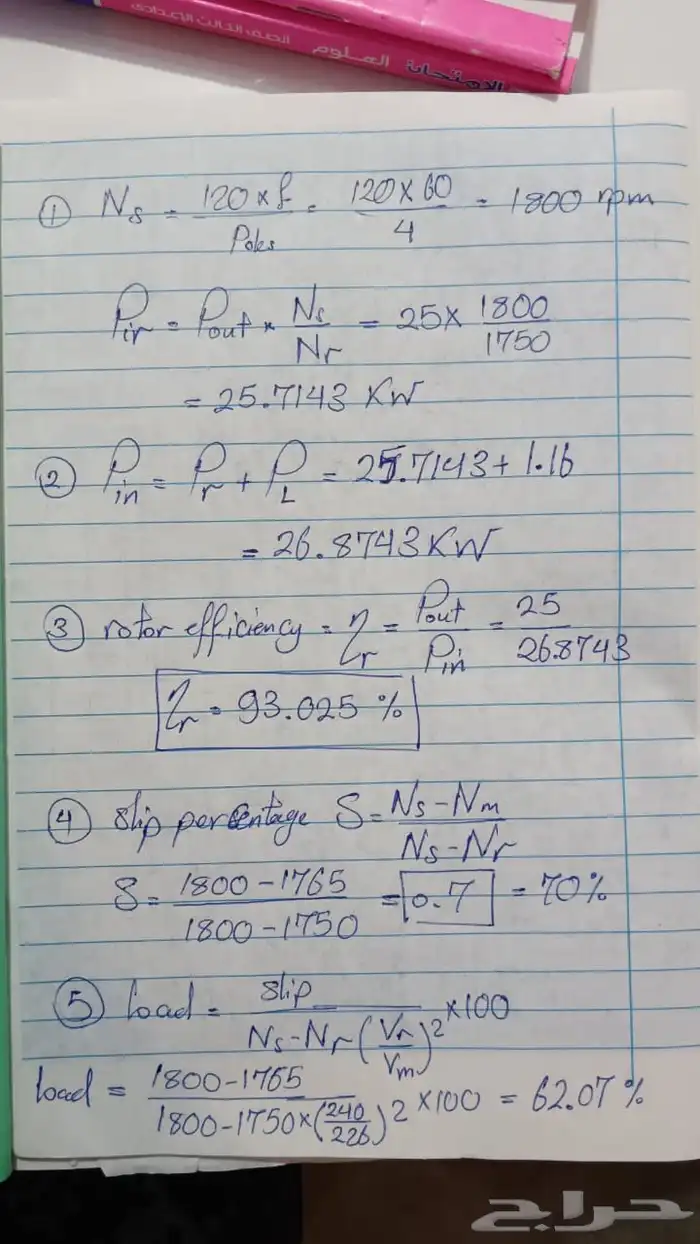 الامتحان العلوم الصف الثالث الإعدادى
① Ns = 120 × f / Poles = 120 × 60 / 4 = 1800 rpm
Pir = Pout × Ns / Nr = 25 × 1800 / 1750
= 25.7143 KW
② Pin = Pr + PL = 25.7143 + 1.16
= 26.8743 KW
③ rotor efficiency = ηr = Pout / Pin = 25 / 26.8743
ηr = 93.025 %
④ slip percentage S = Ns - Nm / Ns - Nr
S = 1800 - 1765 / 1800 - 1750 = 0.7 = 70%
⑤ load = slip / Ns - Nr (Vr / Vm)2 × 100
load = 1800 - 1765 / 1800 - 1750 × (240 / 226)2 × 100 = 62.07 %
حراج